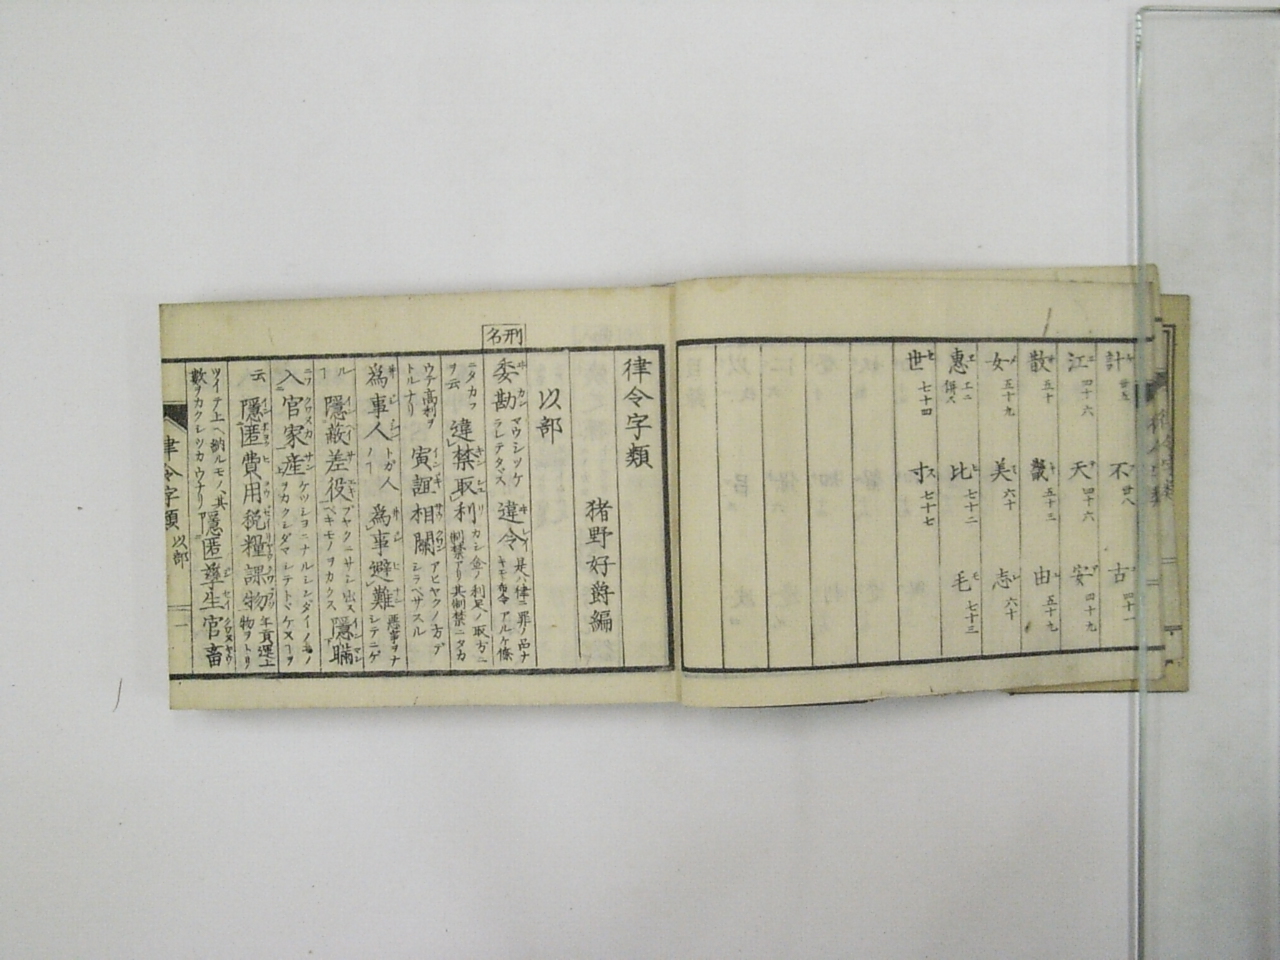 計 廿五 不 廿八 古 四十一
江 四十六 天 四十六 安 四十九
散 五十 幾 五十三 由 五十九
女 五十九 美 六十 志 六十
惠 比 七十二 毛 七十三
世 七十四 寸 七十七
律令字類
猪野好爵編
以部
刑名
委勘 マウシツケラレテタヾス 違令 是ハ律ニ罪ノ品ナ
ニタカフヲ云 違禁取利 カシ金ノ利足ノ取方ニ制禁アリ其制禁ニタカ
ウテ高利ヲトルナリ 寅誼相關 アヒヤクノ方ヲシラベサスル
為事人 トガ人ノ 為事避難 悪事ヲナシテニゲ
ル 隱蔽差役 ブヤクニサシ出スベキモノヲカクス 隱瞞
入官家産 ケツシヨニナルシンダイノモノヲカクシダマシテトヾケヌヿヲ
云 隱匿費用税糧課物 年貢運上物ヲトリ
ツイテ上ヘ納ルモノ其數ヲカクシツカウナリ 隱匿孳生官畜
律令字類 以部 一